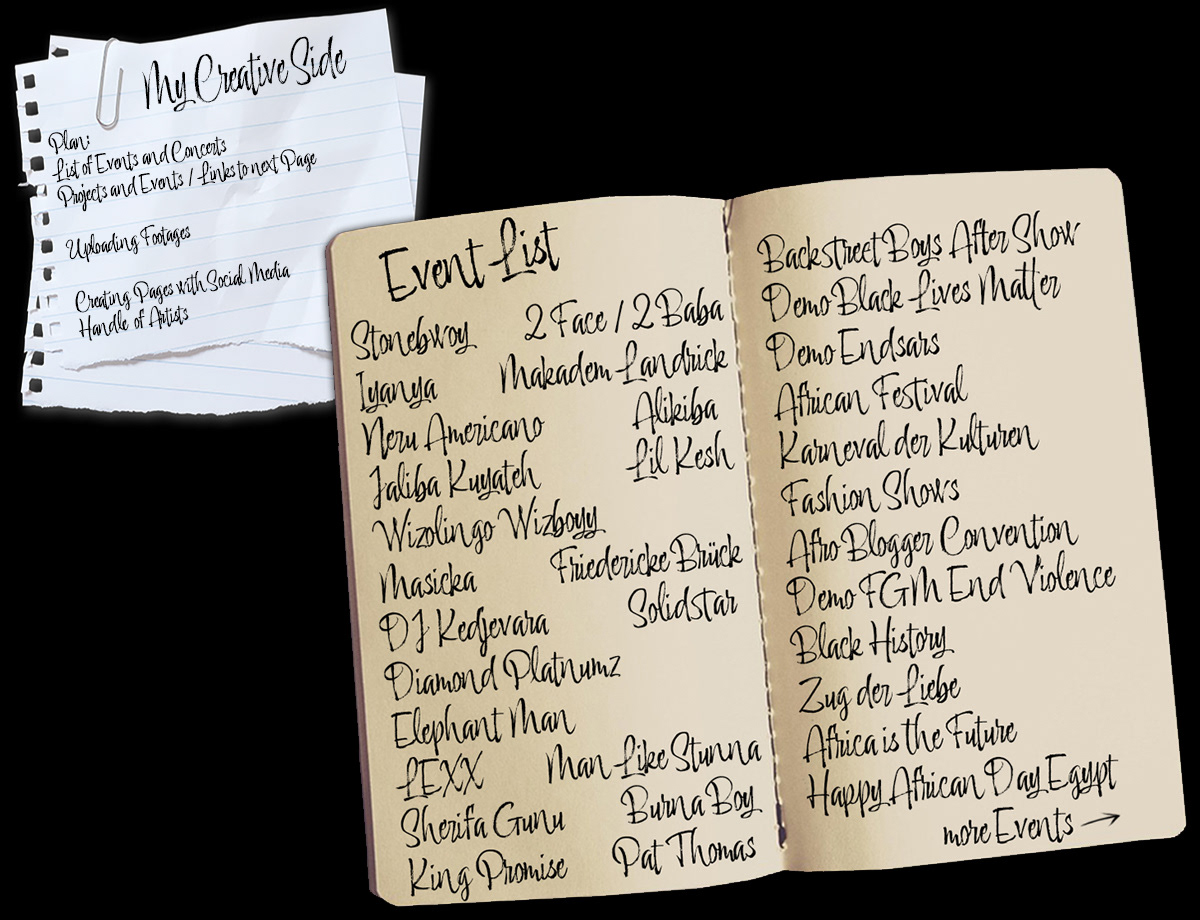 My Creative Side
Plan:
List of Events and Concerts
Projects and Events / Links to next Page
Uploading Footages
Creating Pages with Social Media
Handle of Artists
Event List
Stonebwoy
2 Face / 2 Baba
Iyanya
Makadem Landrick
Neru Americano
Alikiba
Jaliba Kuyateh
Lil Kesh
Wizolingo Wizboyy
Masicka
Friedericke Brück
DJ Kedjevara
Solidstar
Diamond Platnumz
Elephant Man
LEXX
Man Like Stunna
Sherifa Gunu
Burna Boy
King Promise
Pat Thomas
Backstreet Boys After Show
Demo Black Lives Matter
Demo Endsars
African Festival
Karneval der Kulturen
Fashion Shows
Afro Blogger Convention
Demo FGM End Violence
Black History
Zug der Liebe
Africa is the Future
Happy African Day Egypt
more Events →